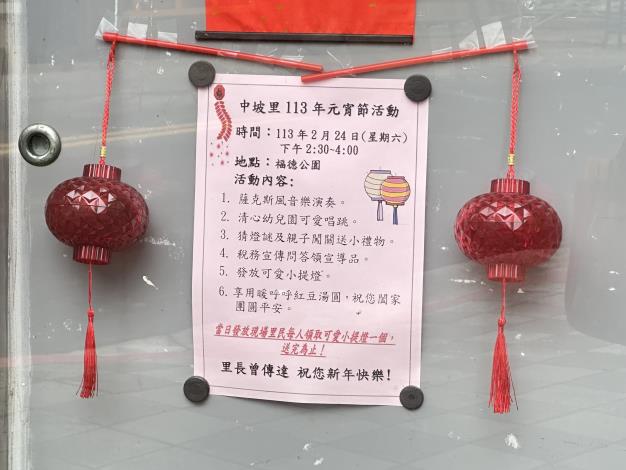 中坡里 113 年元宵節活動
時間：113 年 2 月 24 日(星期六)
下午 2:30~4:00
地點：福德公園
活動內容:
1. 薩克斯風音樂演奏。
2. 清心幼兒園可愛唱跳。
3. 猜燈謎及親子闖關送小禮物。
4. 稅務宣傳問答領宣導品。
5. 發放可愛小提燈。
6. 享用暖呼呼紅豆湯圓，祝您闔家
團圓平安。
當日發放現場里民每人領取可愛小提燈一個，
送完為止！
里長曾傳達 祝您新年快樂!